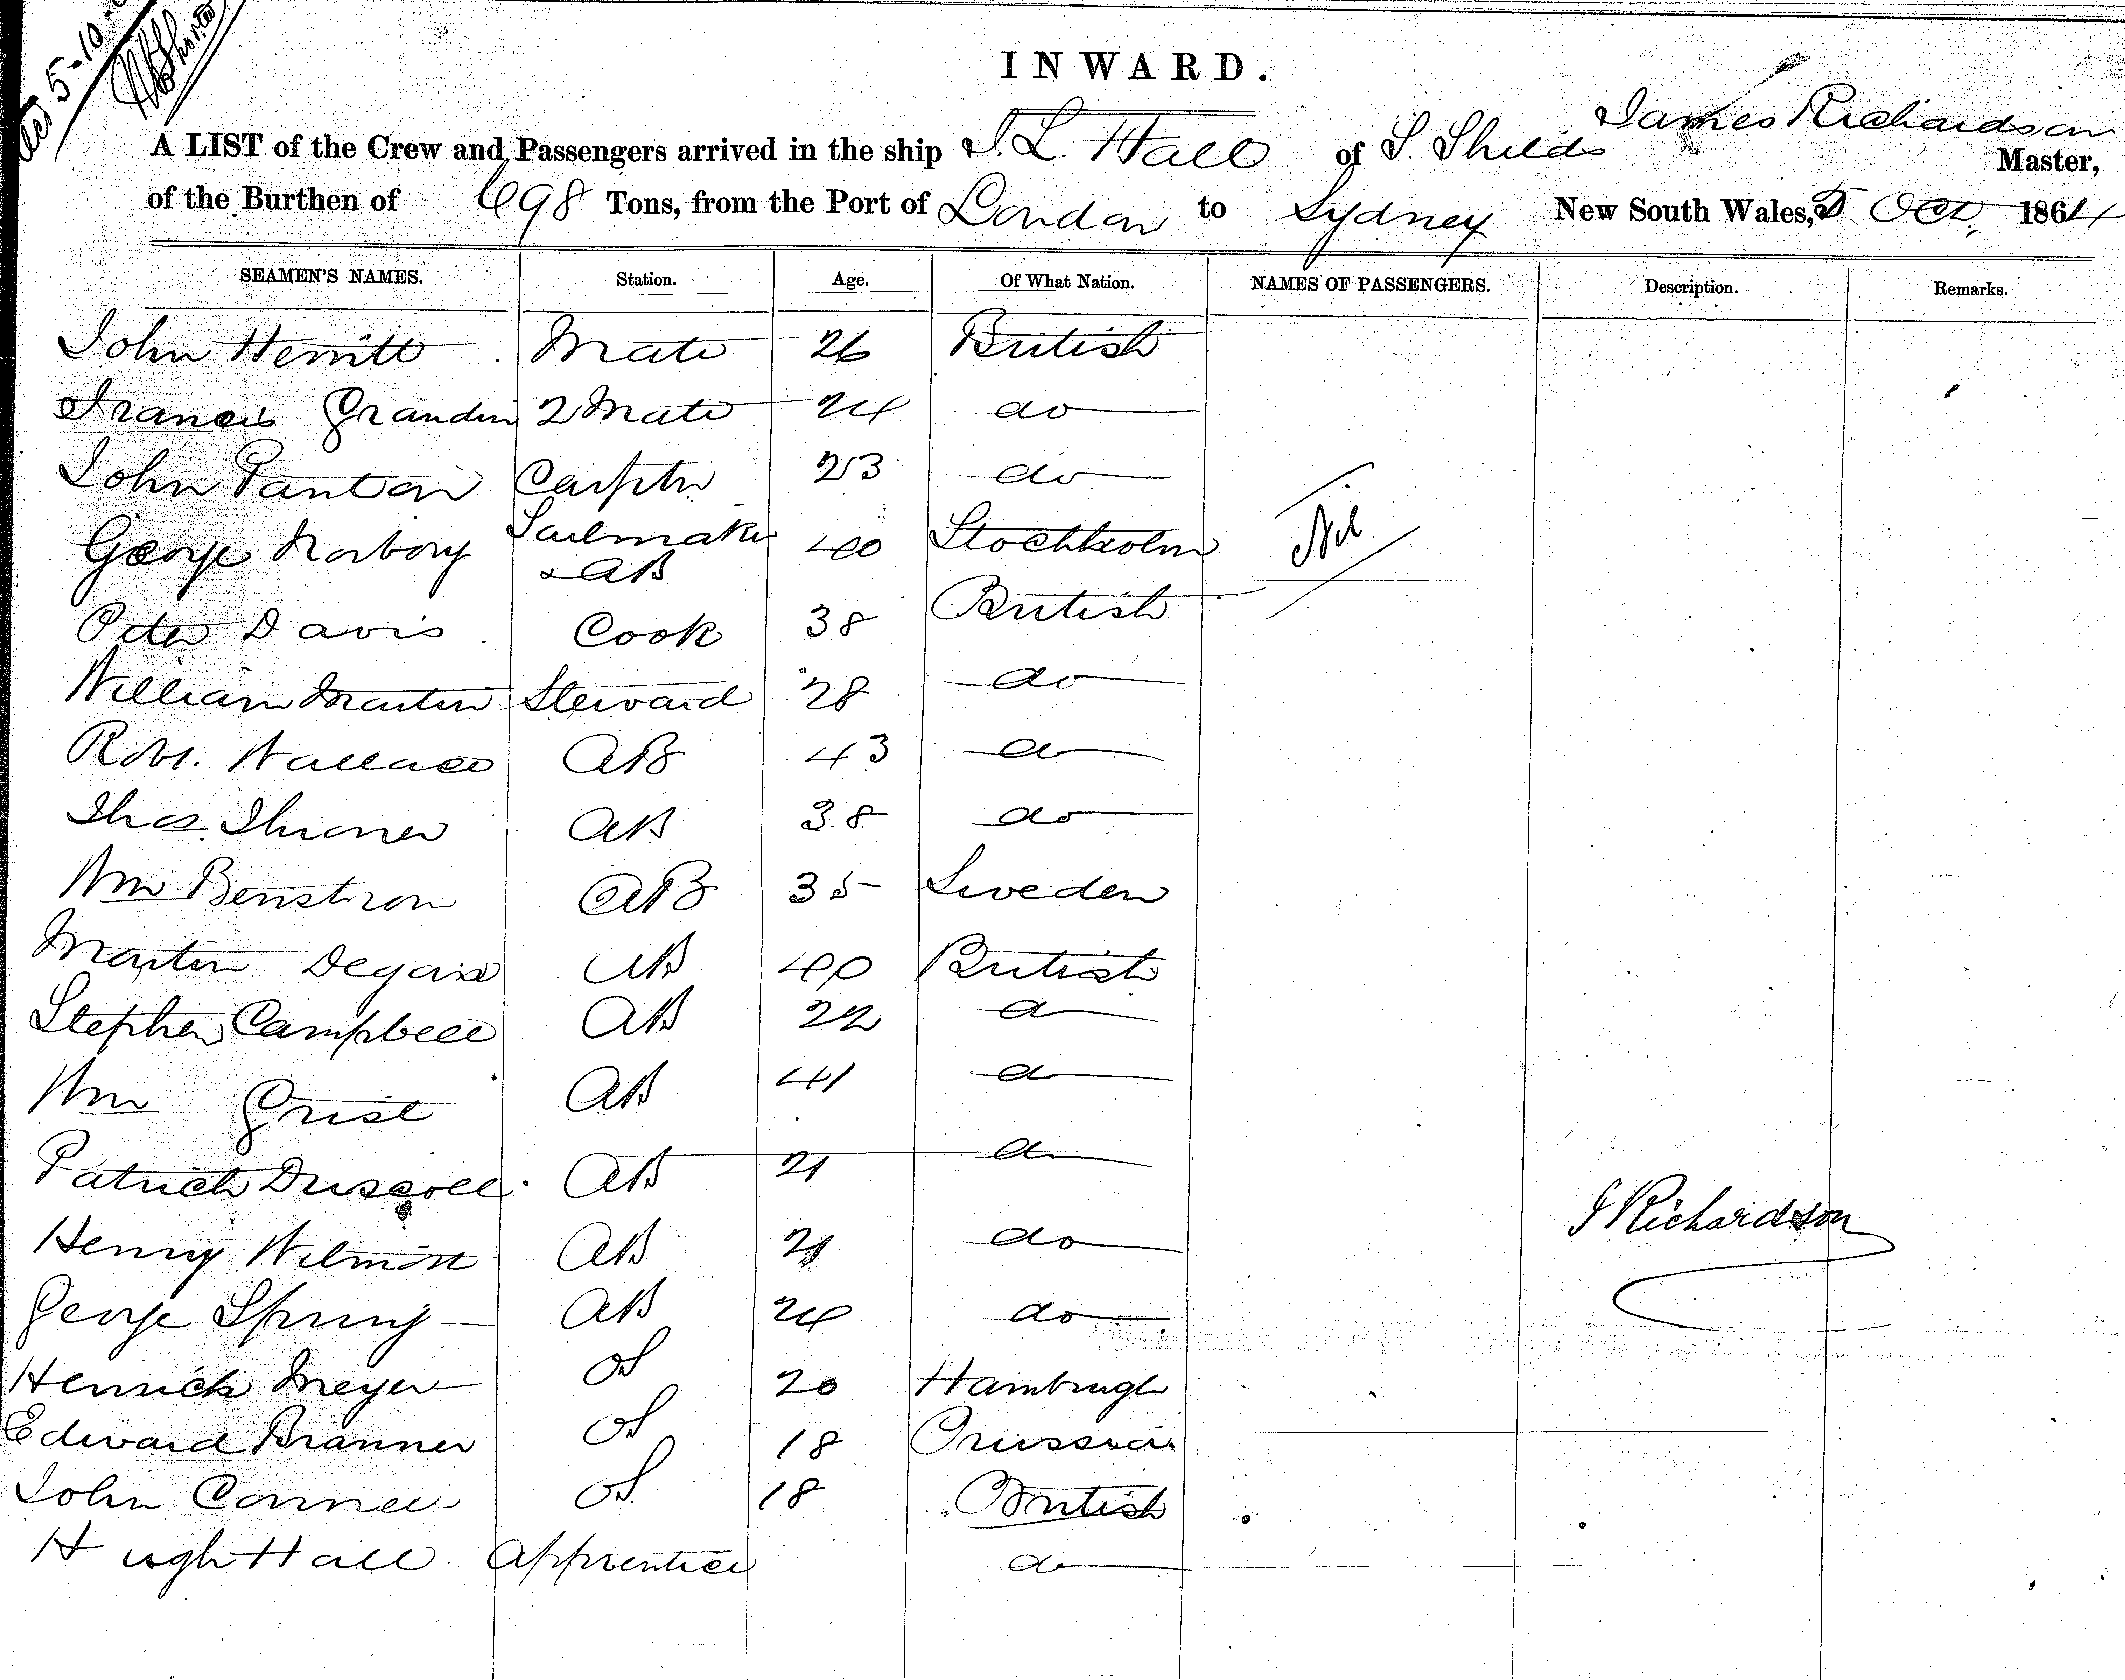 5-10-
INWARD.
James Richardson
A LIST of the Crew and Passengers arrived in the ship J. L. Hall of S. Shields Master,
of the Burthen of 698 Tons, from the Port of London to Sydney New South Wales, 5 Oct. 1864
SEAMEN'S NAMES. Station. Age. Of What Nation. NAMES OF PASSENGERS. Description. Remarks.
John Hewitt Mate 26 British
Francis Grandin 2 Mate 24 do
John Panton Carptr 23 do
George Norbory Sailmaker & AB 40 Stockholm Nil
Peter Davis Cook 38 British
William Martin Steward 28 do
Robt. Wallace AB 43 do
Thos. AB 38 do
Wm Benstron AB 35 Sweden
Martin Degan AB 40 British
Stephen Campbell AB 22 do
Wm Grist AB 41 do
Patrick Driscoll AB 21 do
Henry Wilmott AB 21 do
George Spring AB 24 do
J Richardson
Henrick Meyer OS 20 Hamburgh
Edward Branner OS 18 Prussia
John Connell OS 18 British
Hugh Hall Apprentice do